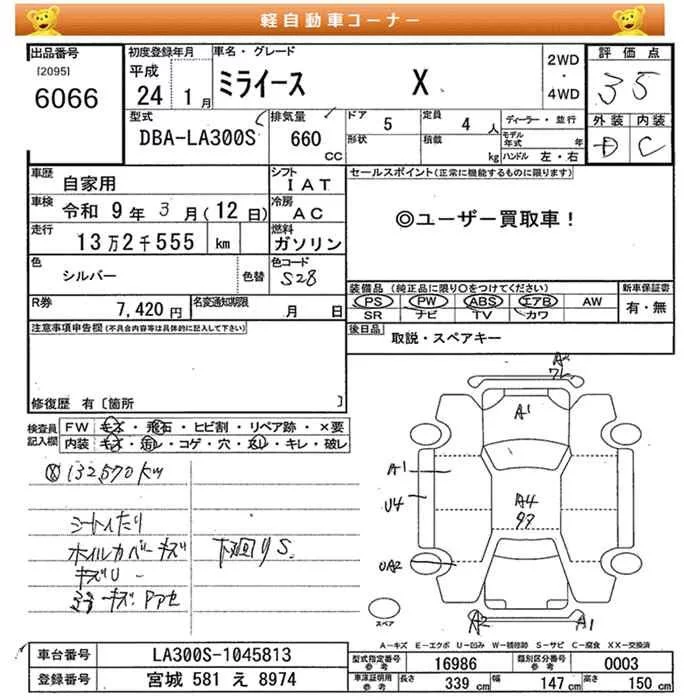 軽自動車コーナー
出品番号 初度登録年月 車名・グレード 2WD・4WD 評価点
[2095] 6066 平成24 1月 ミライース X 35
型式 排気量 ドア 5 定員 4人 ディーラー・並行 外装 内装
DBA-LA300S 660 CC 形状 積載 kg モデル年式 年 ハンドル 左・右 D C
車歴 自家用 シフト IAT セールスポイント(正常に機能するものに限ります)
車検 令和 9年 3月(12日) 冷房 AC ◎ユーザー買取車!
走行 13万2千555 km 燃料 ガソリン
色 シルバー 色替 色コード S28
装備品(純正品に限り○をつけてください) 新車保証書
R券 7,420円 名変通知期限 月 日 PS PW ABS エアB AW 有・無
SR ナビ TV カワ
注意事項申告欄(不具合内容等は具体的に記入して下さい) 後日品 取説・スペアキー
修復歴 有〔箇所 〕
検査員記入欄 FW キズ・飛石・ヒビ割・リペア跡・×要
内装 キズ・汚レ・コゲ・穴・スレ・キレ・破レ
132,570km
シートへたり
ホイルカバーキズ 下廻りS
キズU
A2
ワレ
A1
A1
U4
A4
UA2
A2 A1
スペア
A-キズ E-エクボ U-凹み W-補修跡 S-サビ C-腐食 XX-交換済
車台番号 LA300S-1045813 型式指定番号 参考 16986 類別区分番号 参考 0003
登録番号 宮城 581 え 8974 車庫証明用 参考 長さ 339 cm 幅 147 cm 高さ 150 cm